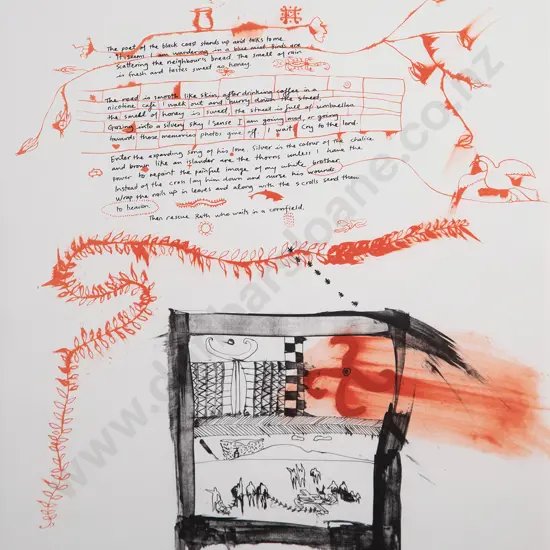 The poet of the black coast stands up and talks to me
- It seems I am wandering in a blue mist. Birds are
scattering the neighbour's bread. The smell of rain
is fresh and tastes sweet as honey.
The road is smooth like skin, after drinking coffee in a
nicotine café I walk out and hurry down the street,
the smell of honey is sweet, the street is full of umbrellas
Grazing into a silvery sky I sense I am going mad, or going
towards those memories photos give off. I wait. Cry to the lord.
Enter the expanding song of his love. Silver is the colour of the chalice
and brown like an islander are the thorns unless I have the
power to repaint the painful image of my white brother.
Instead of the cross lay him down and nurse his wounds.
Wrap the nails up in leaves and along with the scrolls send them
to heaven.
Then rescue Ruth who waits in a cornfield.
www.dunbarsloane.co.nz